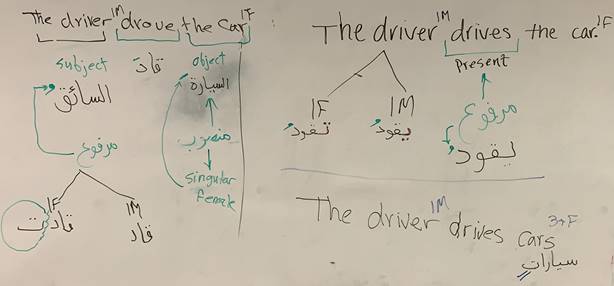 The driver 1M drove the car 1F
subject قادَ object
السائقُ السيارةَ
مرفوع منصوب
singular
female
1F 1M
قادت قاد
The driver 1M drives the car. 1F
Present
1F 1M
تقودُ يقودُ
مرفوع
يقودُ
The driver 1M drives cars 3+F
سياراتٍ